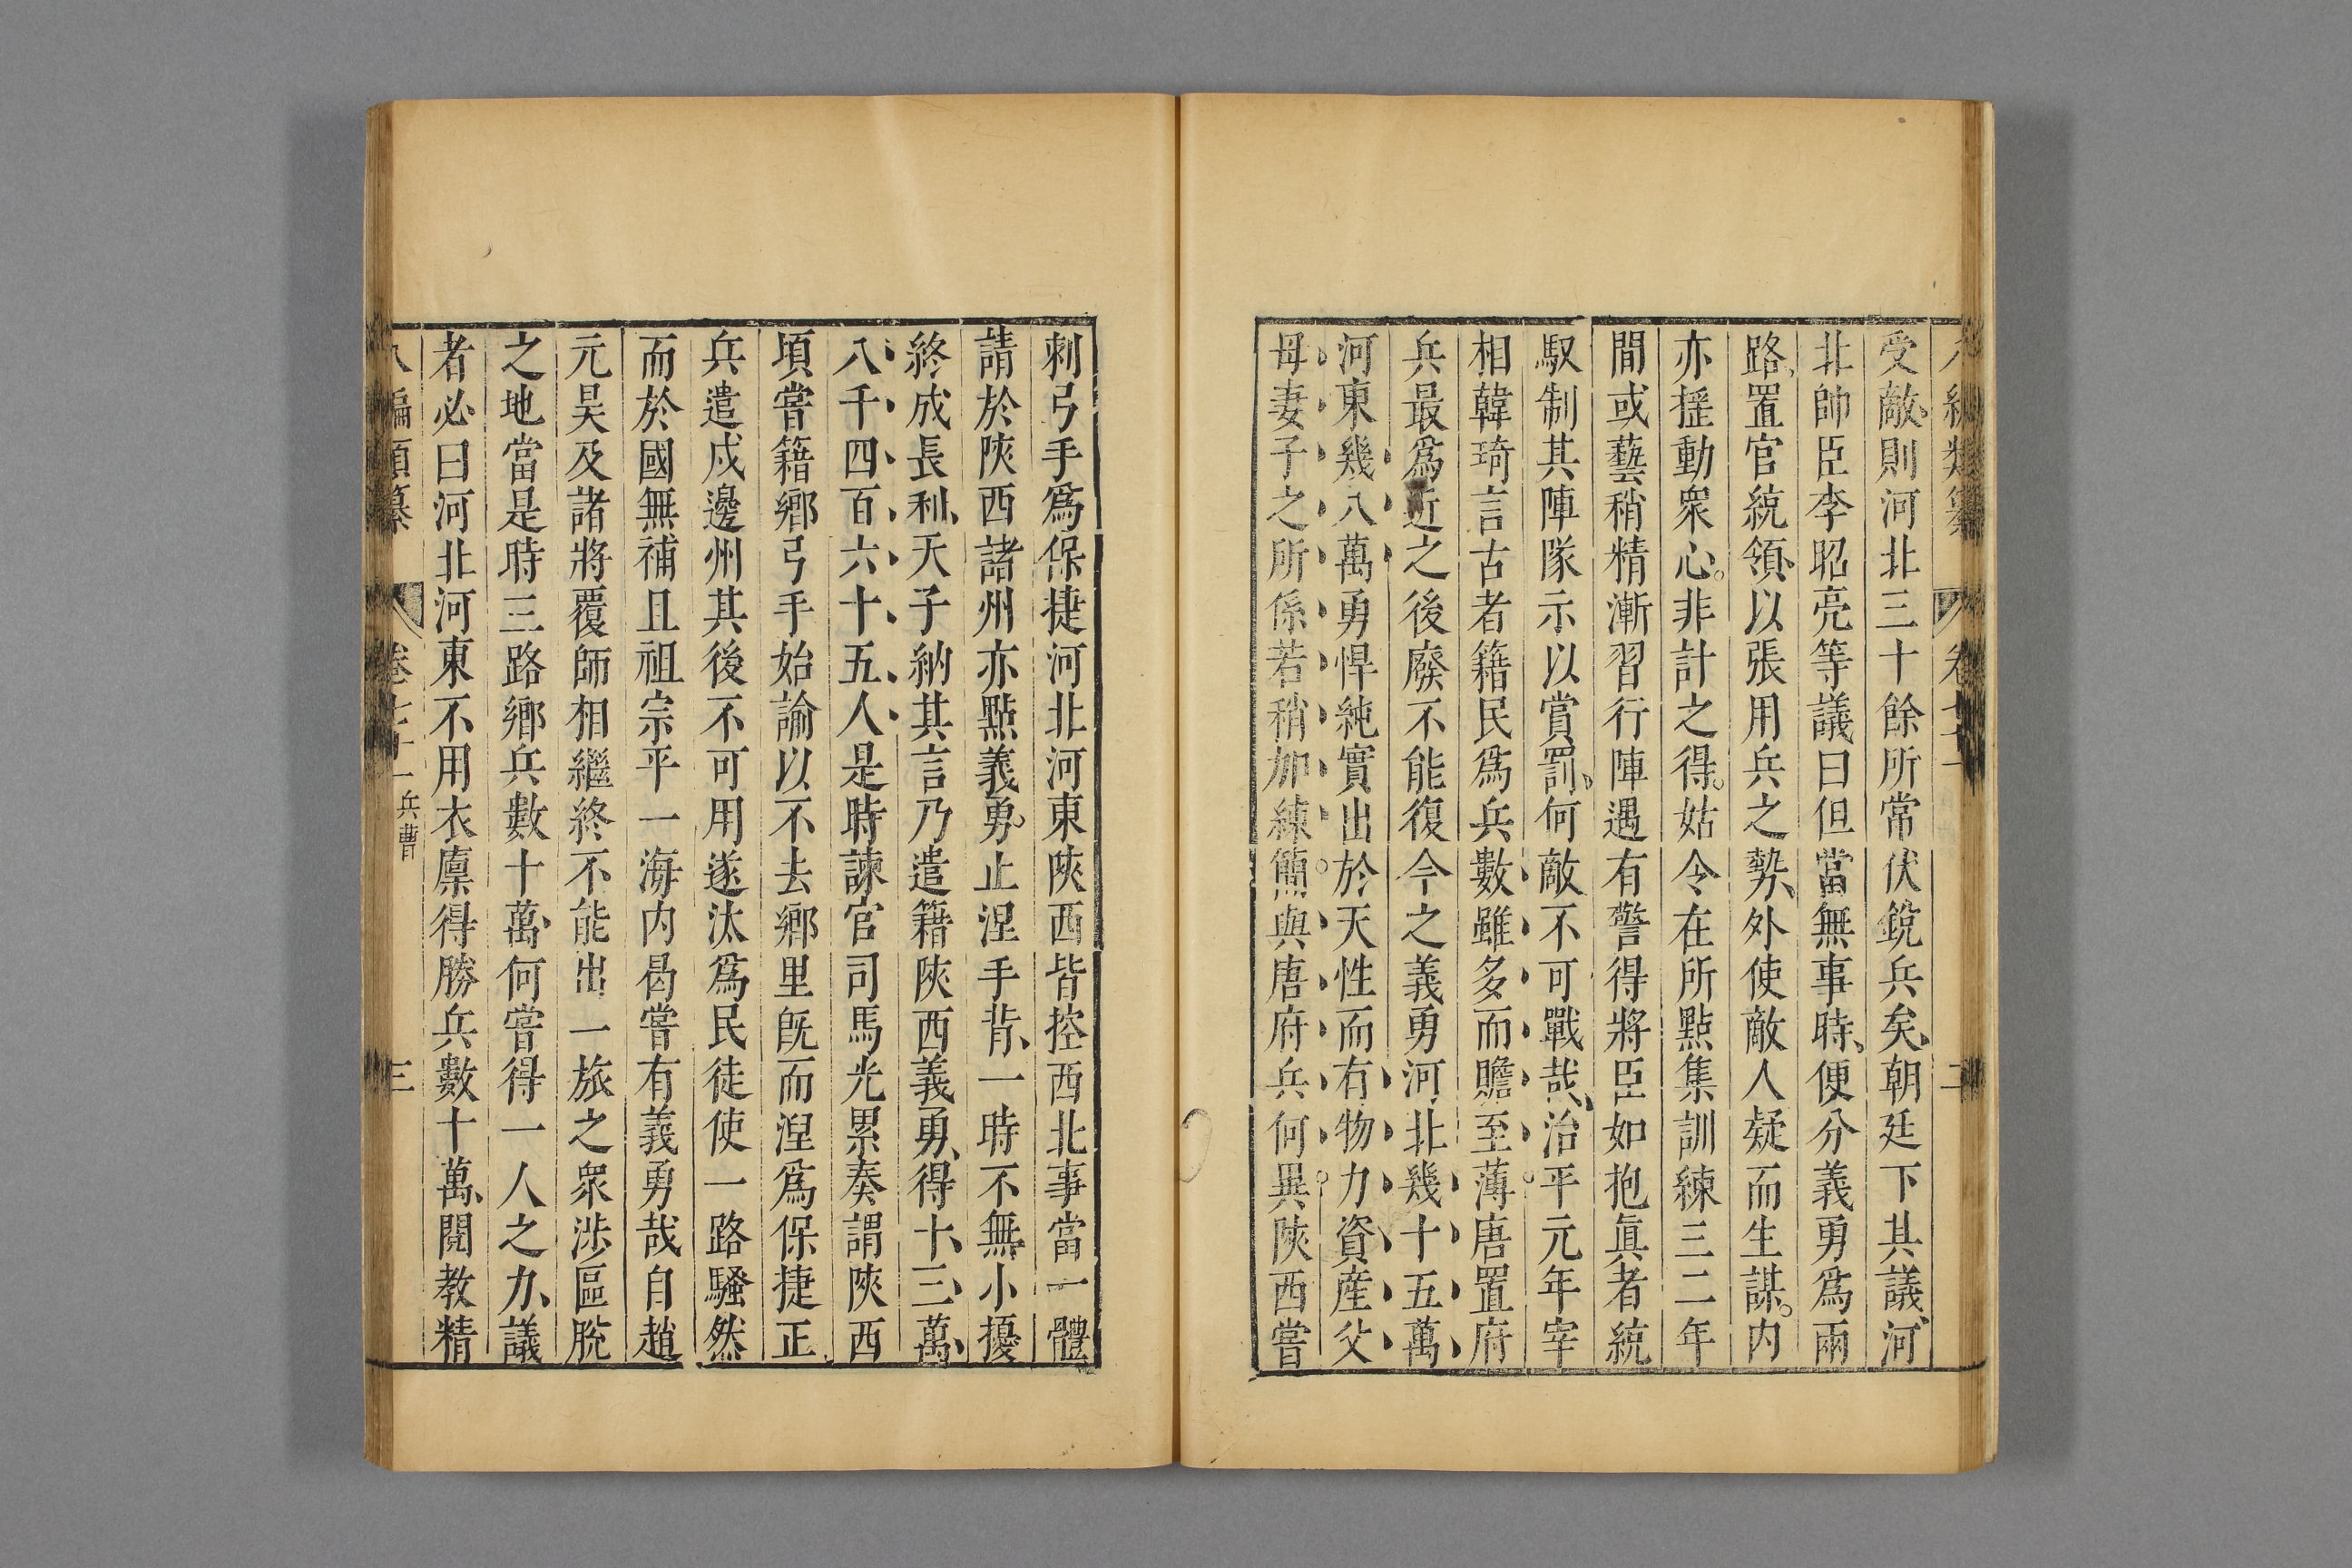 受敵則河北三十餘所常伏銳兵矣朝廷下其議河
北帥臣李昭亮等議曰但當無事時便分義勇爲兩
路置官統領以張用兵之勢外使敵人疑而生謀内
亦揺動衆心非計之得姑令在所點集訓練三二年
間或藝稍精漸習行陣遇有警得將臣如抱眞者統
馭制其陣隊示以賞罰何敵不可戰哉治平元年宰
相韓琦言古者籍民爲兵數雖多而贍至薄唐置府
兵最爲近之後廢不能復今之義勇河北幾十五萬
河東幾八萬勇悍純實出於天性而有物力資産父
母妻子之所係若稍加練簡與唐府兵何異陜西嘗
刺弓手爲保捷河北河東陜西皆控西北事當一體
請於陜西諸州亦點義勇止涅手背一時不無小擾
終成長利天子納其言乃遣籍陜西義勇得十三萬
八千四百六十五人是時諫官司馬光累奏謂陜西
頃嘗籍鄉弓手始諭以不去鄉里旣而涅爲保捷正
兵遣戍邊州其後不可用遂汰爲民徒使一路騷然
而於國無補且祖宗平一海内曷嘗有義勇哉自趙
元昊及諸將覆師相繼終不能出一旅之衆涉區脫
之地當是時三路鄉兵數十萬何嘗得一人之力議
者必曰河北河東不用衣廩得勝兵數十萬閱教精
八編類纂 卷七十一 兵曹 三